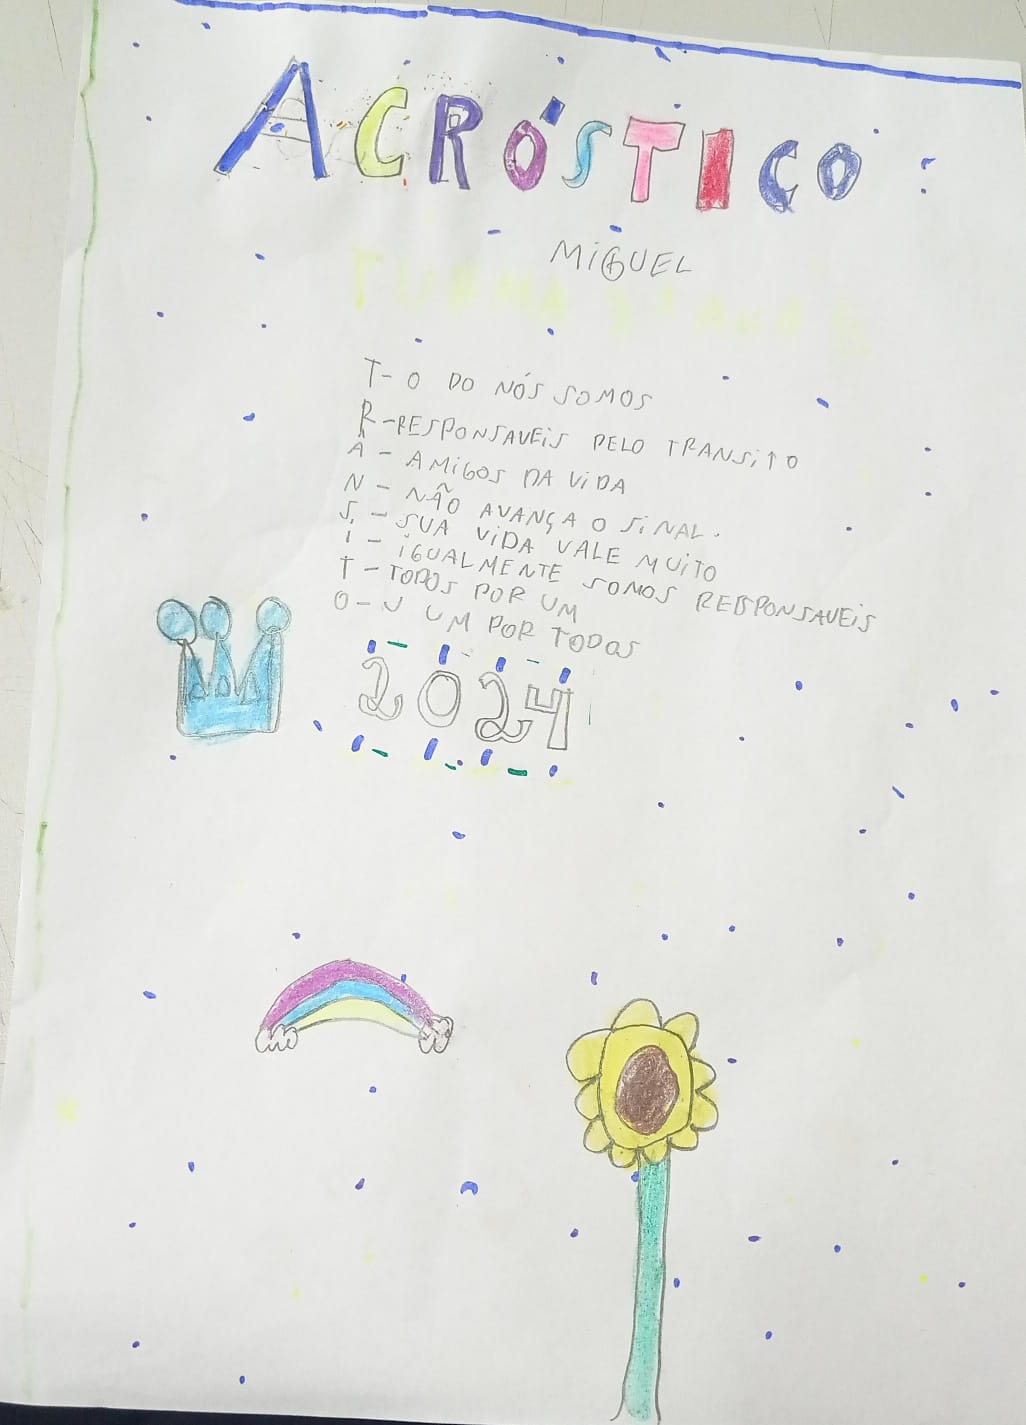 ACRÓSTICO
MIGUEL
T- O DO NÓS SOMOS
R-RESPONSAVEIS PELO TRANSITO
Â - AMIGOS DA VIDA
N - NÃO AVANÇA O SINAL.
S - SUA VIDA VALE MUITO
I - IGUALMENTE SOMOS RESPONSAVEIS
T - TODOS POR UM
O - UM POR TODOS
2024